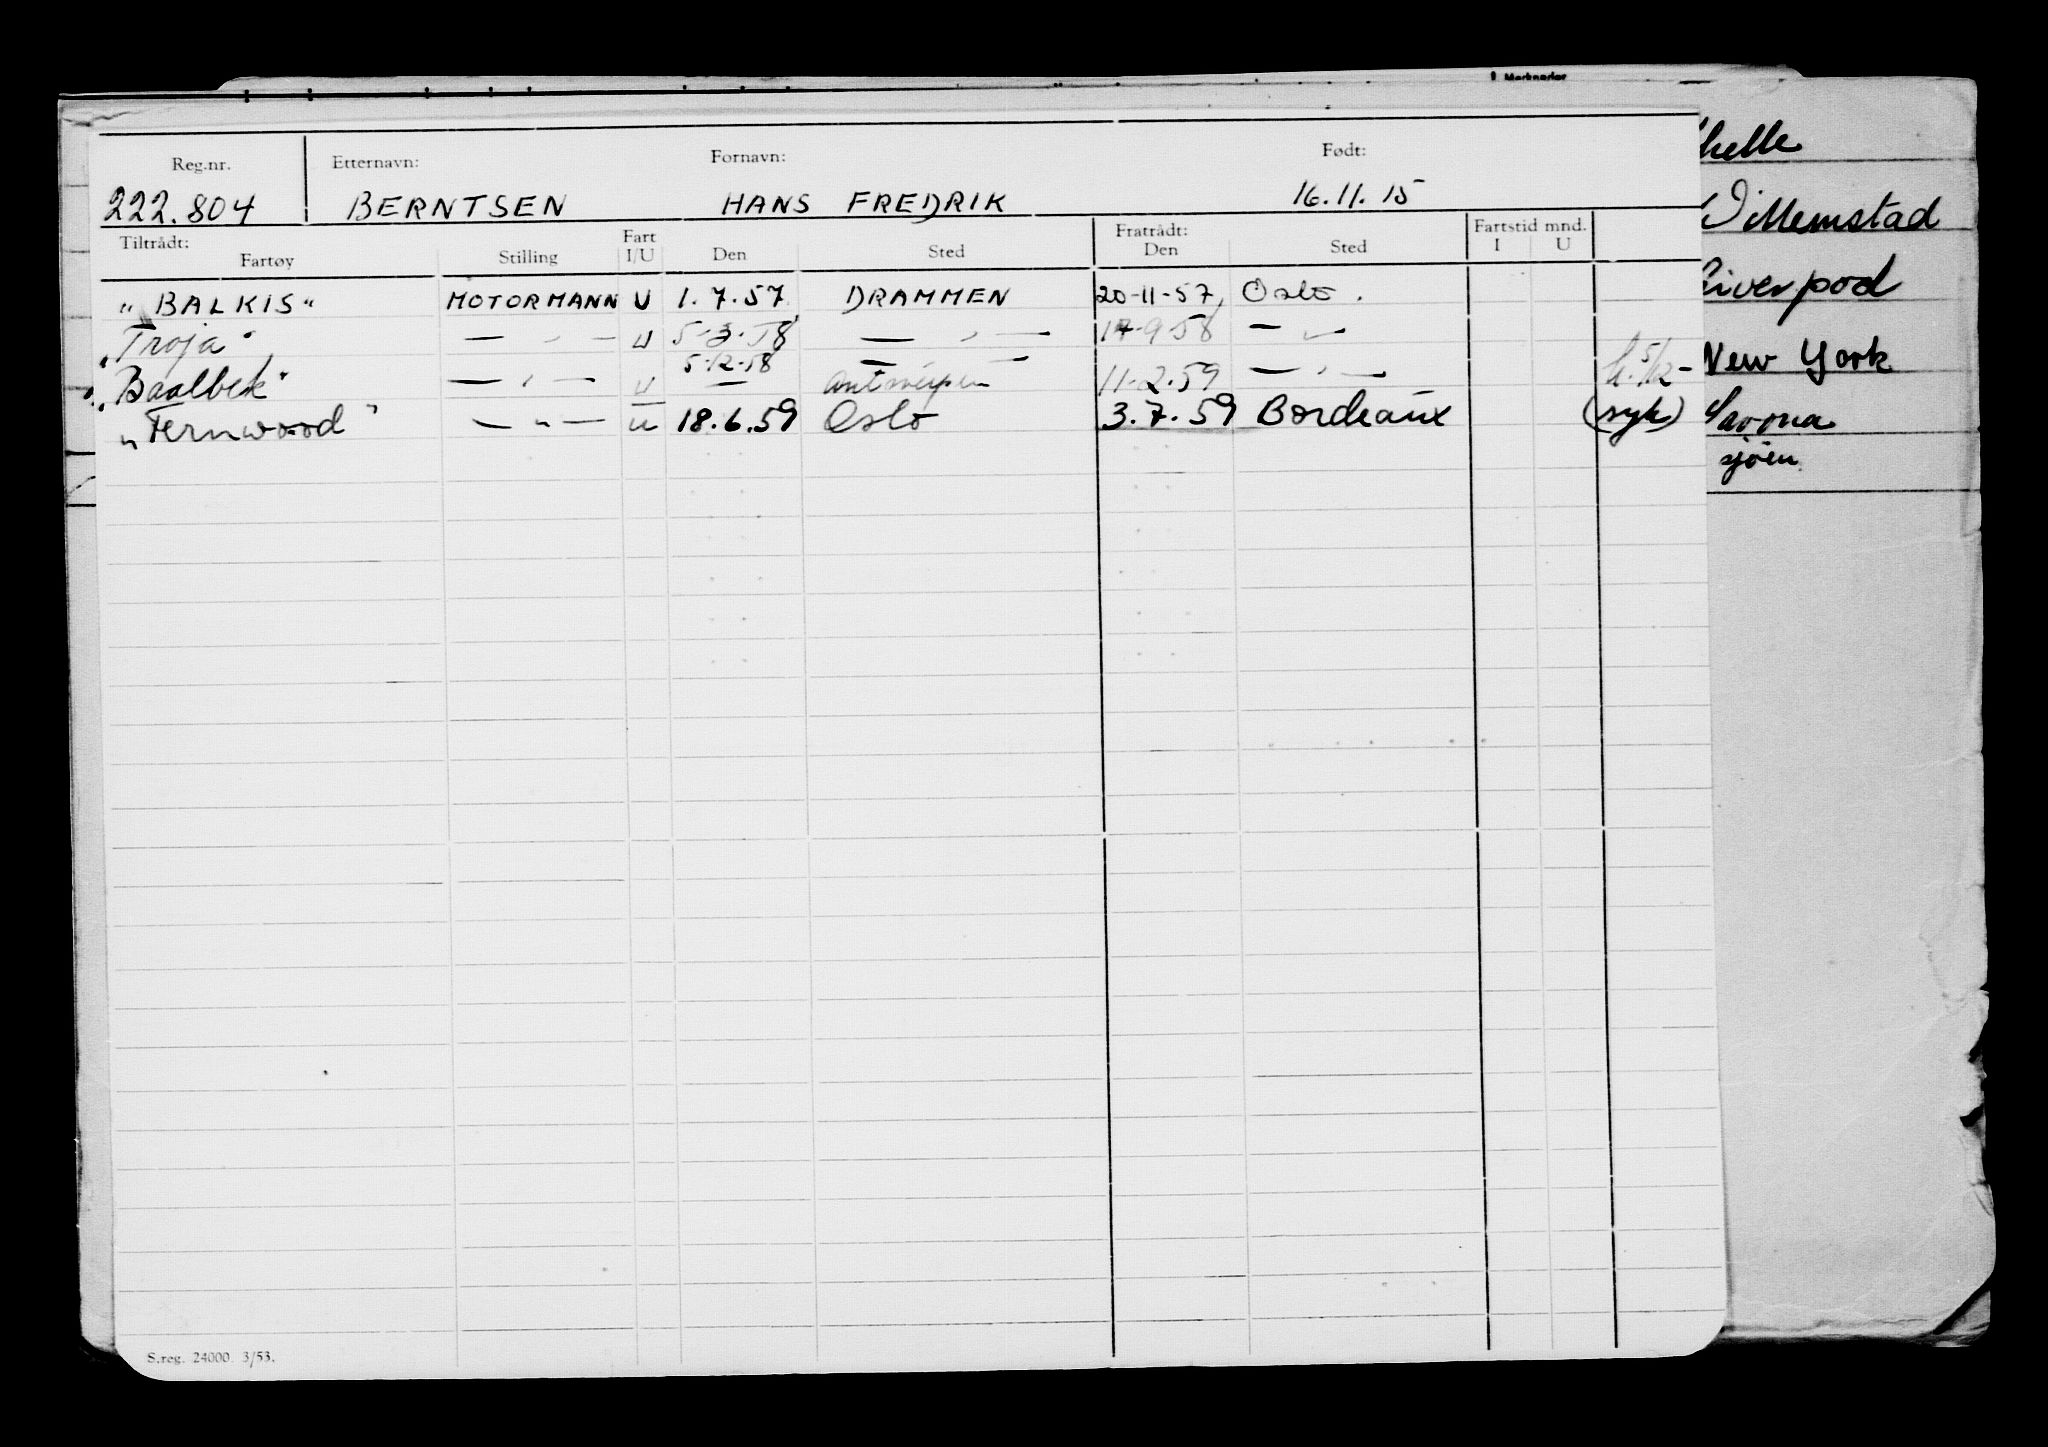 Merknader
Reg.nr. Etternavn: Fornavn: Født:
222.804 BERNTSEN HANS FREDRIK 16.11.15
Tiltrådt: Fratrådt: Fartstid mnd.
Fartøy Stilling Fart I/U Den Sted Den Sted I U
"BALKIS" MOTORMANN U 1.7.57 DRAMMEN 20-11-57, Oslo.
"Troja" — " — U 5-3-58 — " — 17-9-58 — " —
5-12-58 — —
"Baalbek" — " — U — Antwerpen 11-2-59 — " — 5/12-
"Fernwood" — " — U 18.6.59 Oslo 3.7.59 Bordeaux (syk)
S.reg. 24000. 3/53.
helle
Willemstad
Liverpool
New York
Savona
sjøen